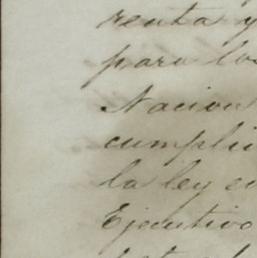 renta y
para los
Nacion
cumpli
la ley e
Ejecutivo